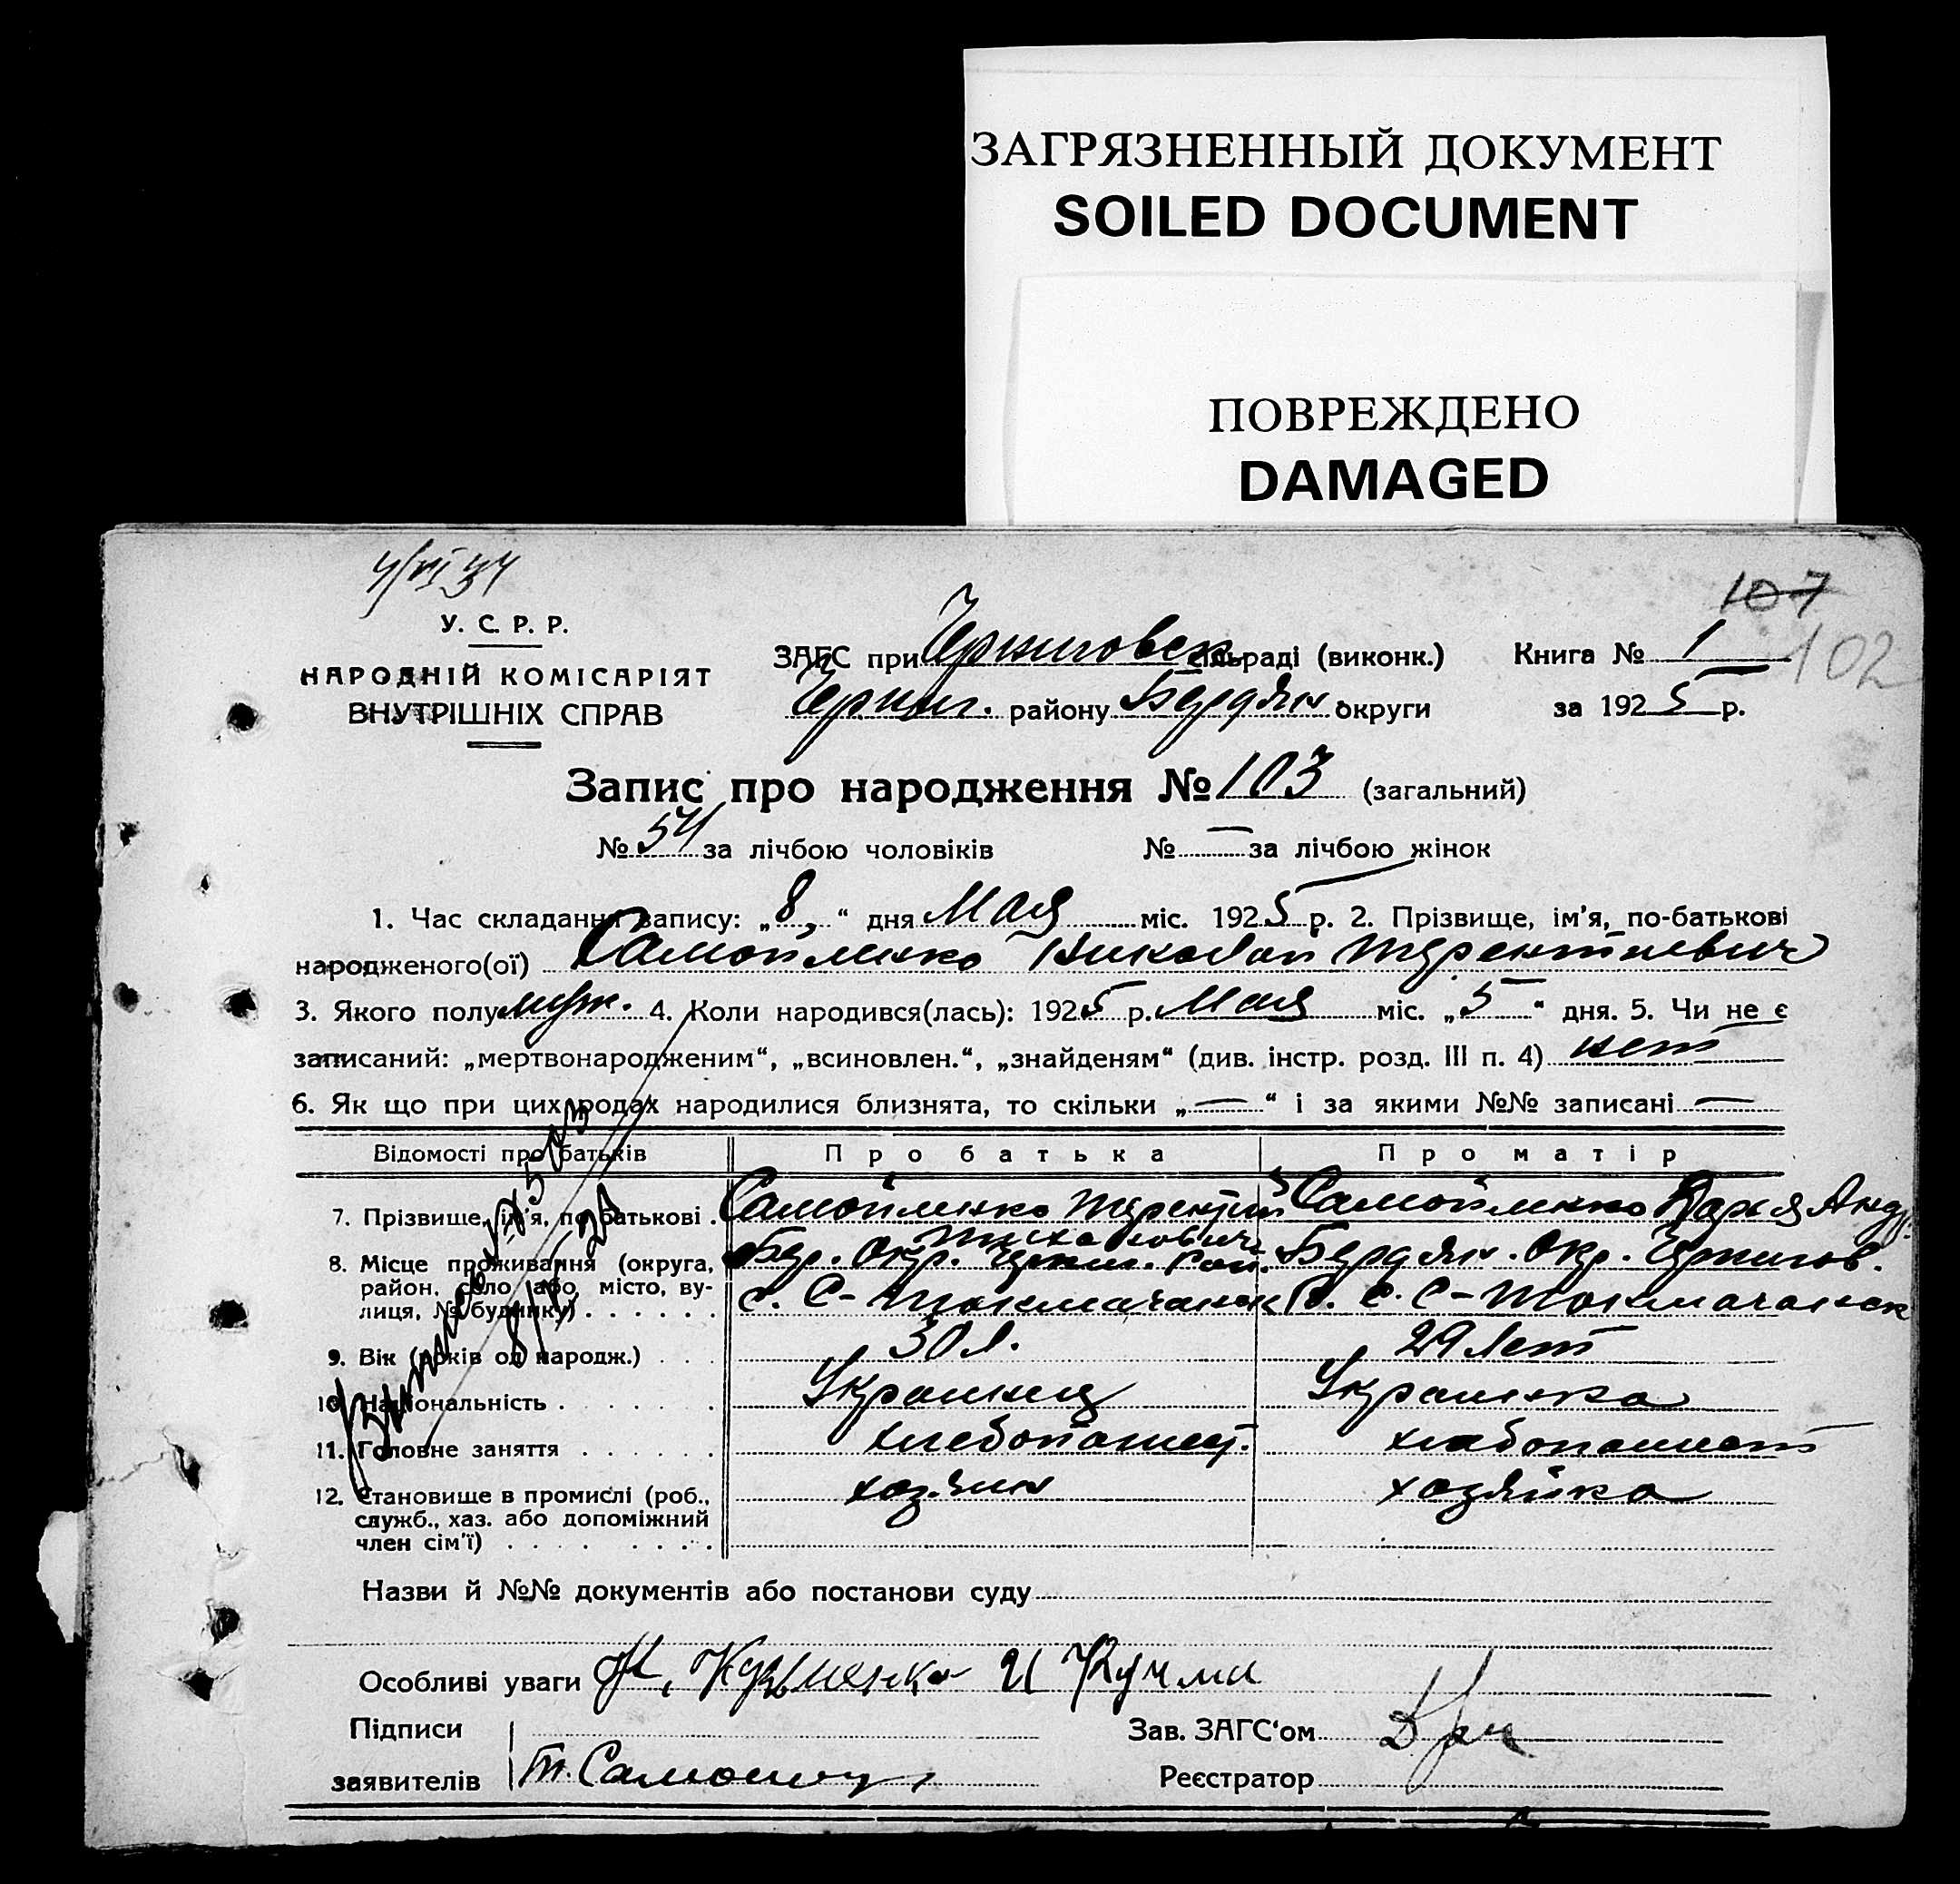 ЗАГРЯЗНЕННЫЙ ДОКУМЕНТ
SOILED DOCUMENT
ПОВРЕЖДЕНО
DAMAGED
107
102
У. С. Р. Р.
НАРОДНІЙ КОМІСАРІЯТ
ВНУТРІШНІХ СПРАВ
ЗАГС при Черниговск сільраді (виконк.) Книга № 1
Черниг. району Бердян округи за 1925 р.
Запис про народження № 103 (загальний)
№ 54 за лічбою чоловіків № — за лічбою жінок
1. Час складання запису: „8“ дня Мая міс. 1925 р. 2. Прізвище, ім'я, по-батькові
народженого(ої) Самойленко Николай Терентиевич
3. Якого полу муж. 4. Коли народився(лась): 1925 р. Мая міс. „5“ дня. 5. Чи не є
записаний: „мертвонародженим“, „всиновлен.“, „знайденям“ (див. інстр. розд. III п. 4) нет
6. Як що при цих родах народилися близнята, то скільки „—“ і за якими №№ записані —
Відомості про батьків Про батька Про матір
7. Прізвище, ім'я, по батькові . Самойленко Терентий Самойленко Дарья Андр.
8. Місце проживання (округа, Бер. Окр. Черниг. Рай. Бердян. Окр. Чернигов.
район, село або місто, ву-
лиця, № будинку) . . . . . . с. С-Токмачанск Р. с. С-Токмачанск
9. Вік (років од народж.) . . . 30 л. 29 лет
10. Національність . . . . . . Украинец Украинка
11. Головне заняття . . . . . . хлебопашец. хлебопашест
12. Становище в промислі (роб., хозяин хозяйка
служб., хаз. або допоміжний
член сім'ї) . . . . . . . .
Назви й №№ документів або постанови суду
Особливі уваги Кузьменко и Кучма
Підписи Зав. ЗАГС'ом
заявителів Т. Самойл Реєстратор